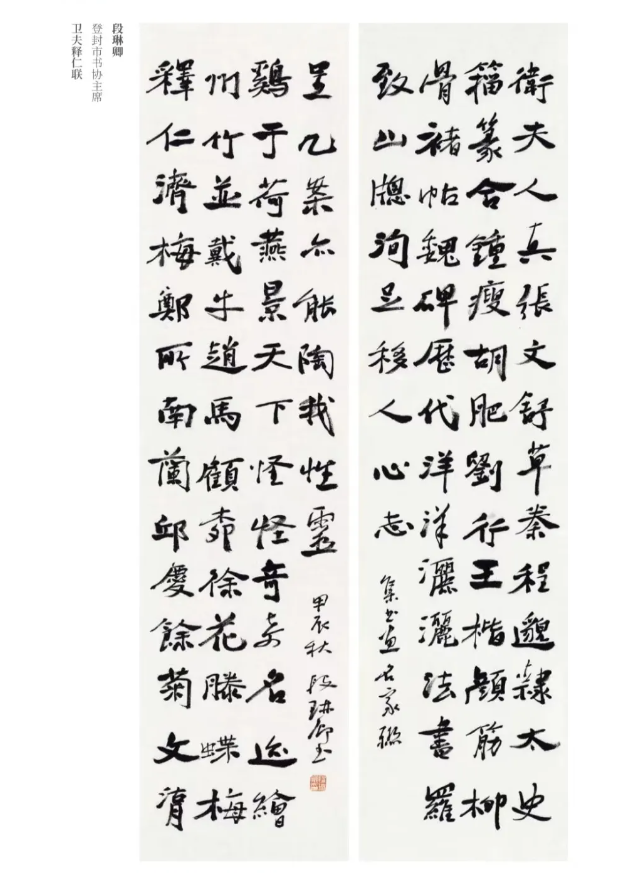 段琳卿
登封市书协主席
卫夫释仁联
衛夫人真張文舒草秦程邈隸太史
籀篆合鍾瘦胡肥劉行王楷顏筋柳
骨褚帖魏碑歷代洋洋灑灑法書羅
致山牕洵足移人心志
集书画名家聯
釋仁濟梅鄭所南蘭邱慶餘菊文湖
州竹並戴牛趙馬顧徐花滕蝶梅
鷄于荷燕景天下怪怪奇奇名迹繪
呈几案亦能陶我性靈
甲辰秋段琳卿书